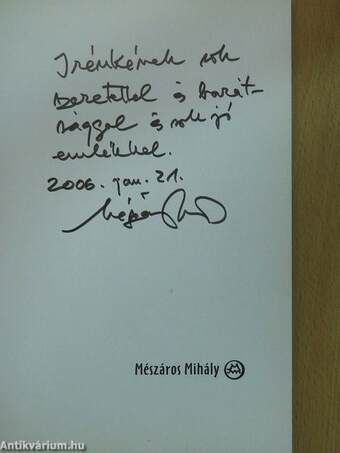 Irénkének sok
szeretettel és barát-
sággal és sok jó
emlékkel.
2006. jan. 21.
Mészáros Mihály
Antikvárium.hu